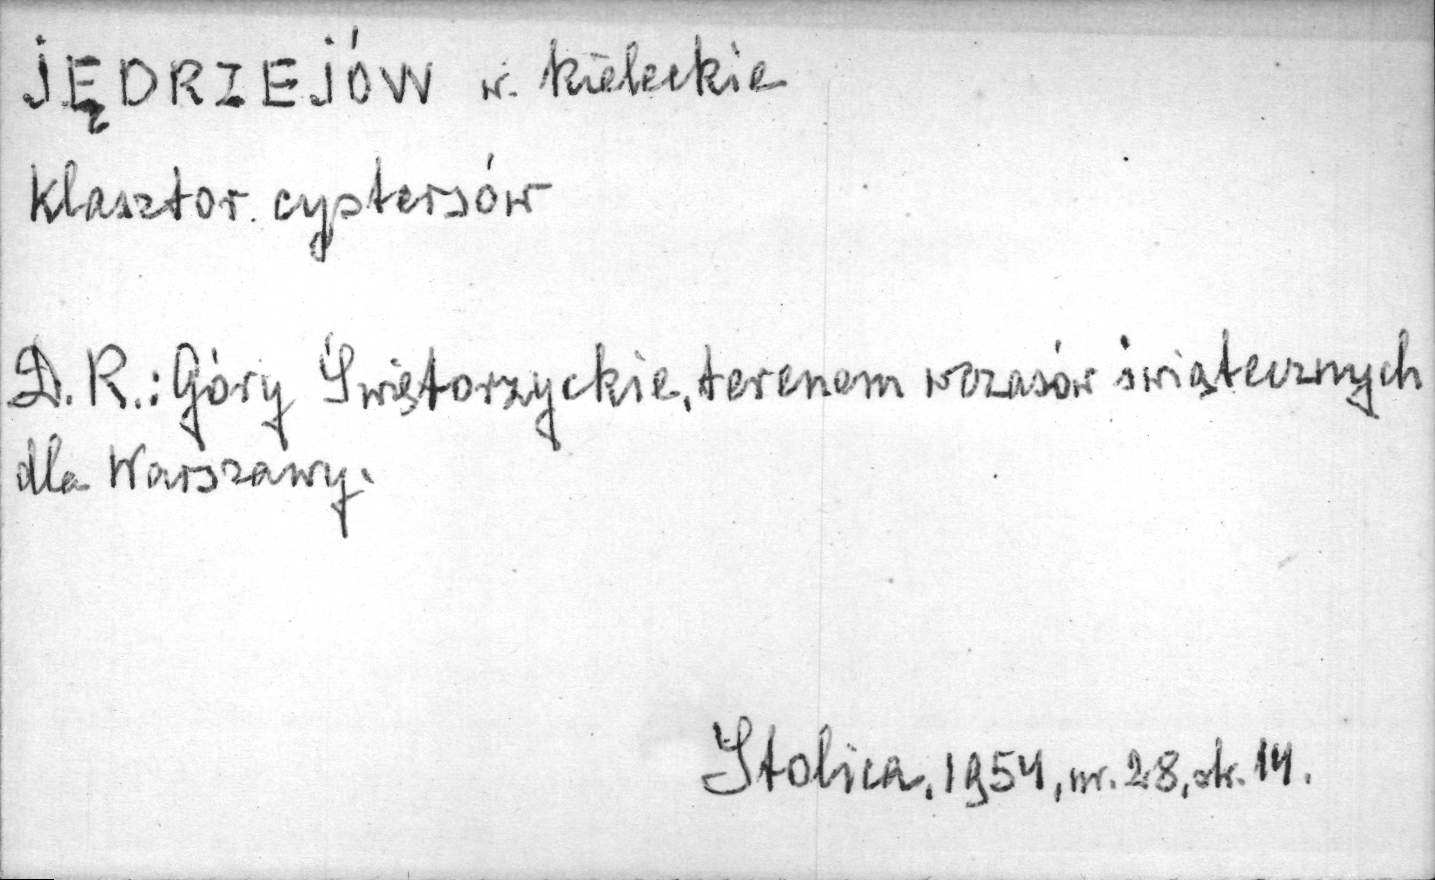 JĘDRZEJÓW w. kieleckie
Klasztor cystersów
D. R.: Góry Świętorzyckie, terenem wczasów świątecznych
dla Warszawy.
Stolica, 1954, nr. 28, str. 14.